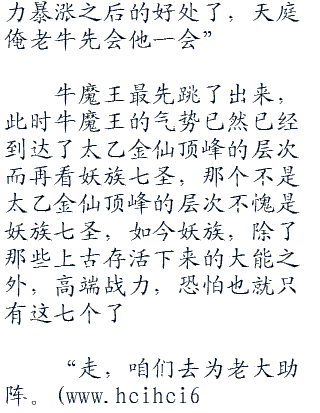 力暴涨之后的好处了，天庭
俺老牛先会他一会”
牛魔王最先跳了出来，
此时牛魔王的气势已然已经
到达了太乙金仙顶峰的层次
而再看妖族七圣，那个不是
太乙金仙顶峰的层次不愧是
妖族七圣，如今妖族，除了
那些上古存活下来的大能之
外，高端战力，恐怕也就只
有这七个了
“走，咱们去为老大助
阵。(www.hcihci6